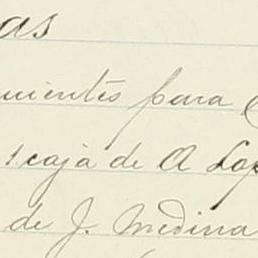 as
uientes para
1. caja de A Lop
de J. Medina